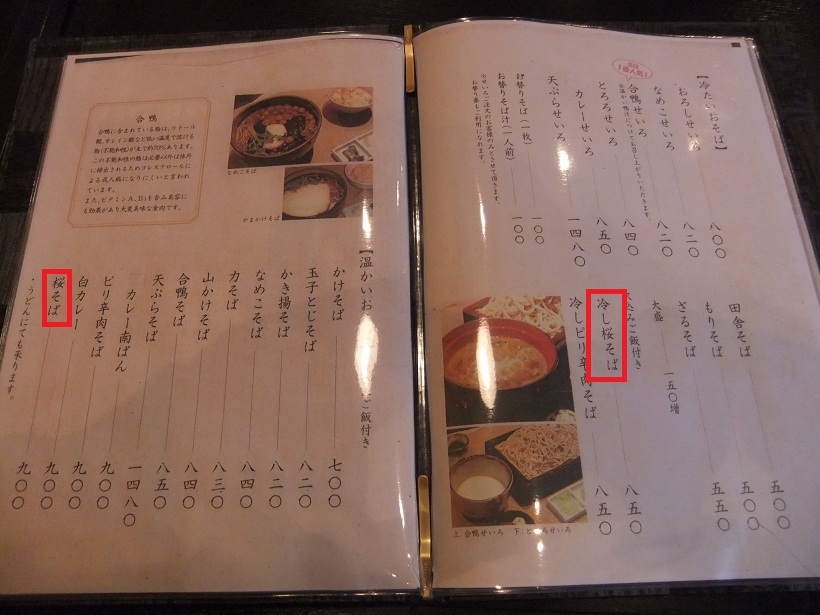 【冷たいおそば】
おろしせいろ 八〇〇
なめこせいろ 八二〇
とろろせいろ 八二〇
当店1番人気!
合鴨せいろ 八四〇
カレーせいろ 八五〇
天ぷらせいろ 一四八〇
お替りそば(一枚) 一〇〇
お替りそば汁(一人前) 一〇〇
田舎そば 五〇〇
もりそば 五〇〇
ざるそば 五五〇
大盛 一五〇増
ご飯付き
冷し桜そば 八五〇
冷しピリ辛肉そば 八五〇
上:合鴨せいろ 下:とろろせいろ
合鴨
なめこそば
やまかけそば
【温かいお
ご飯付き
かけそば 七〇〇
玉子とじそば 八二〇
かき揚そば 八二〇
なめこそば 八四〇
力そば 八三〇
山かけそば 八四〇
合鴨そば 八五〇
天ぷらそば 一四八〇
カレー南ばん 九〇〇
ピリ辛肉そば 九〇〇
白カレー 九〇〇
桜そば 九〇〇
・うどんにても承ります。